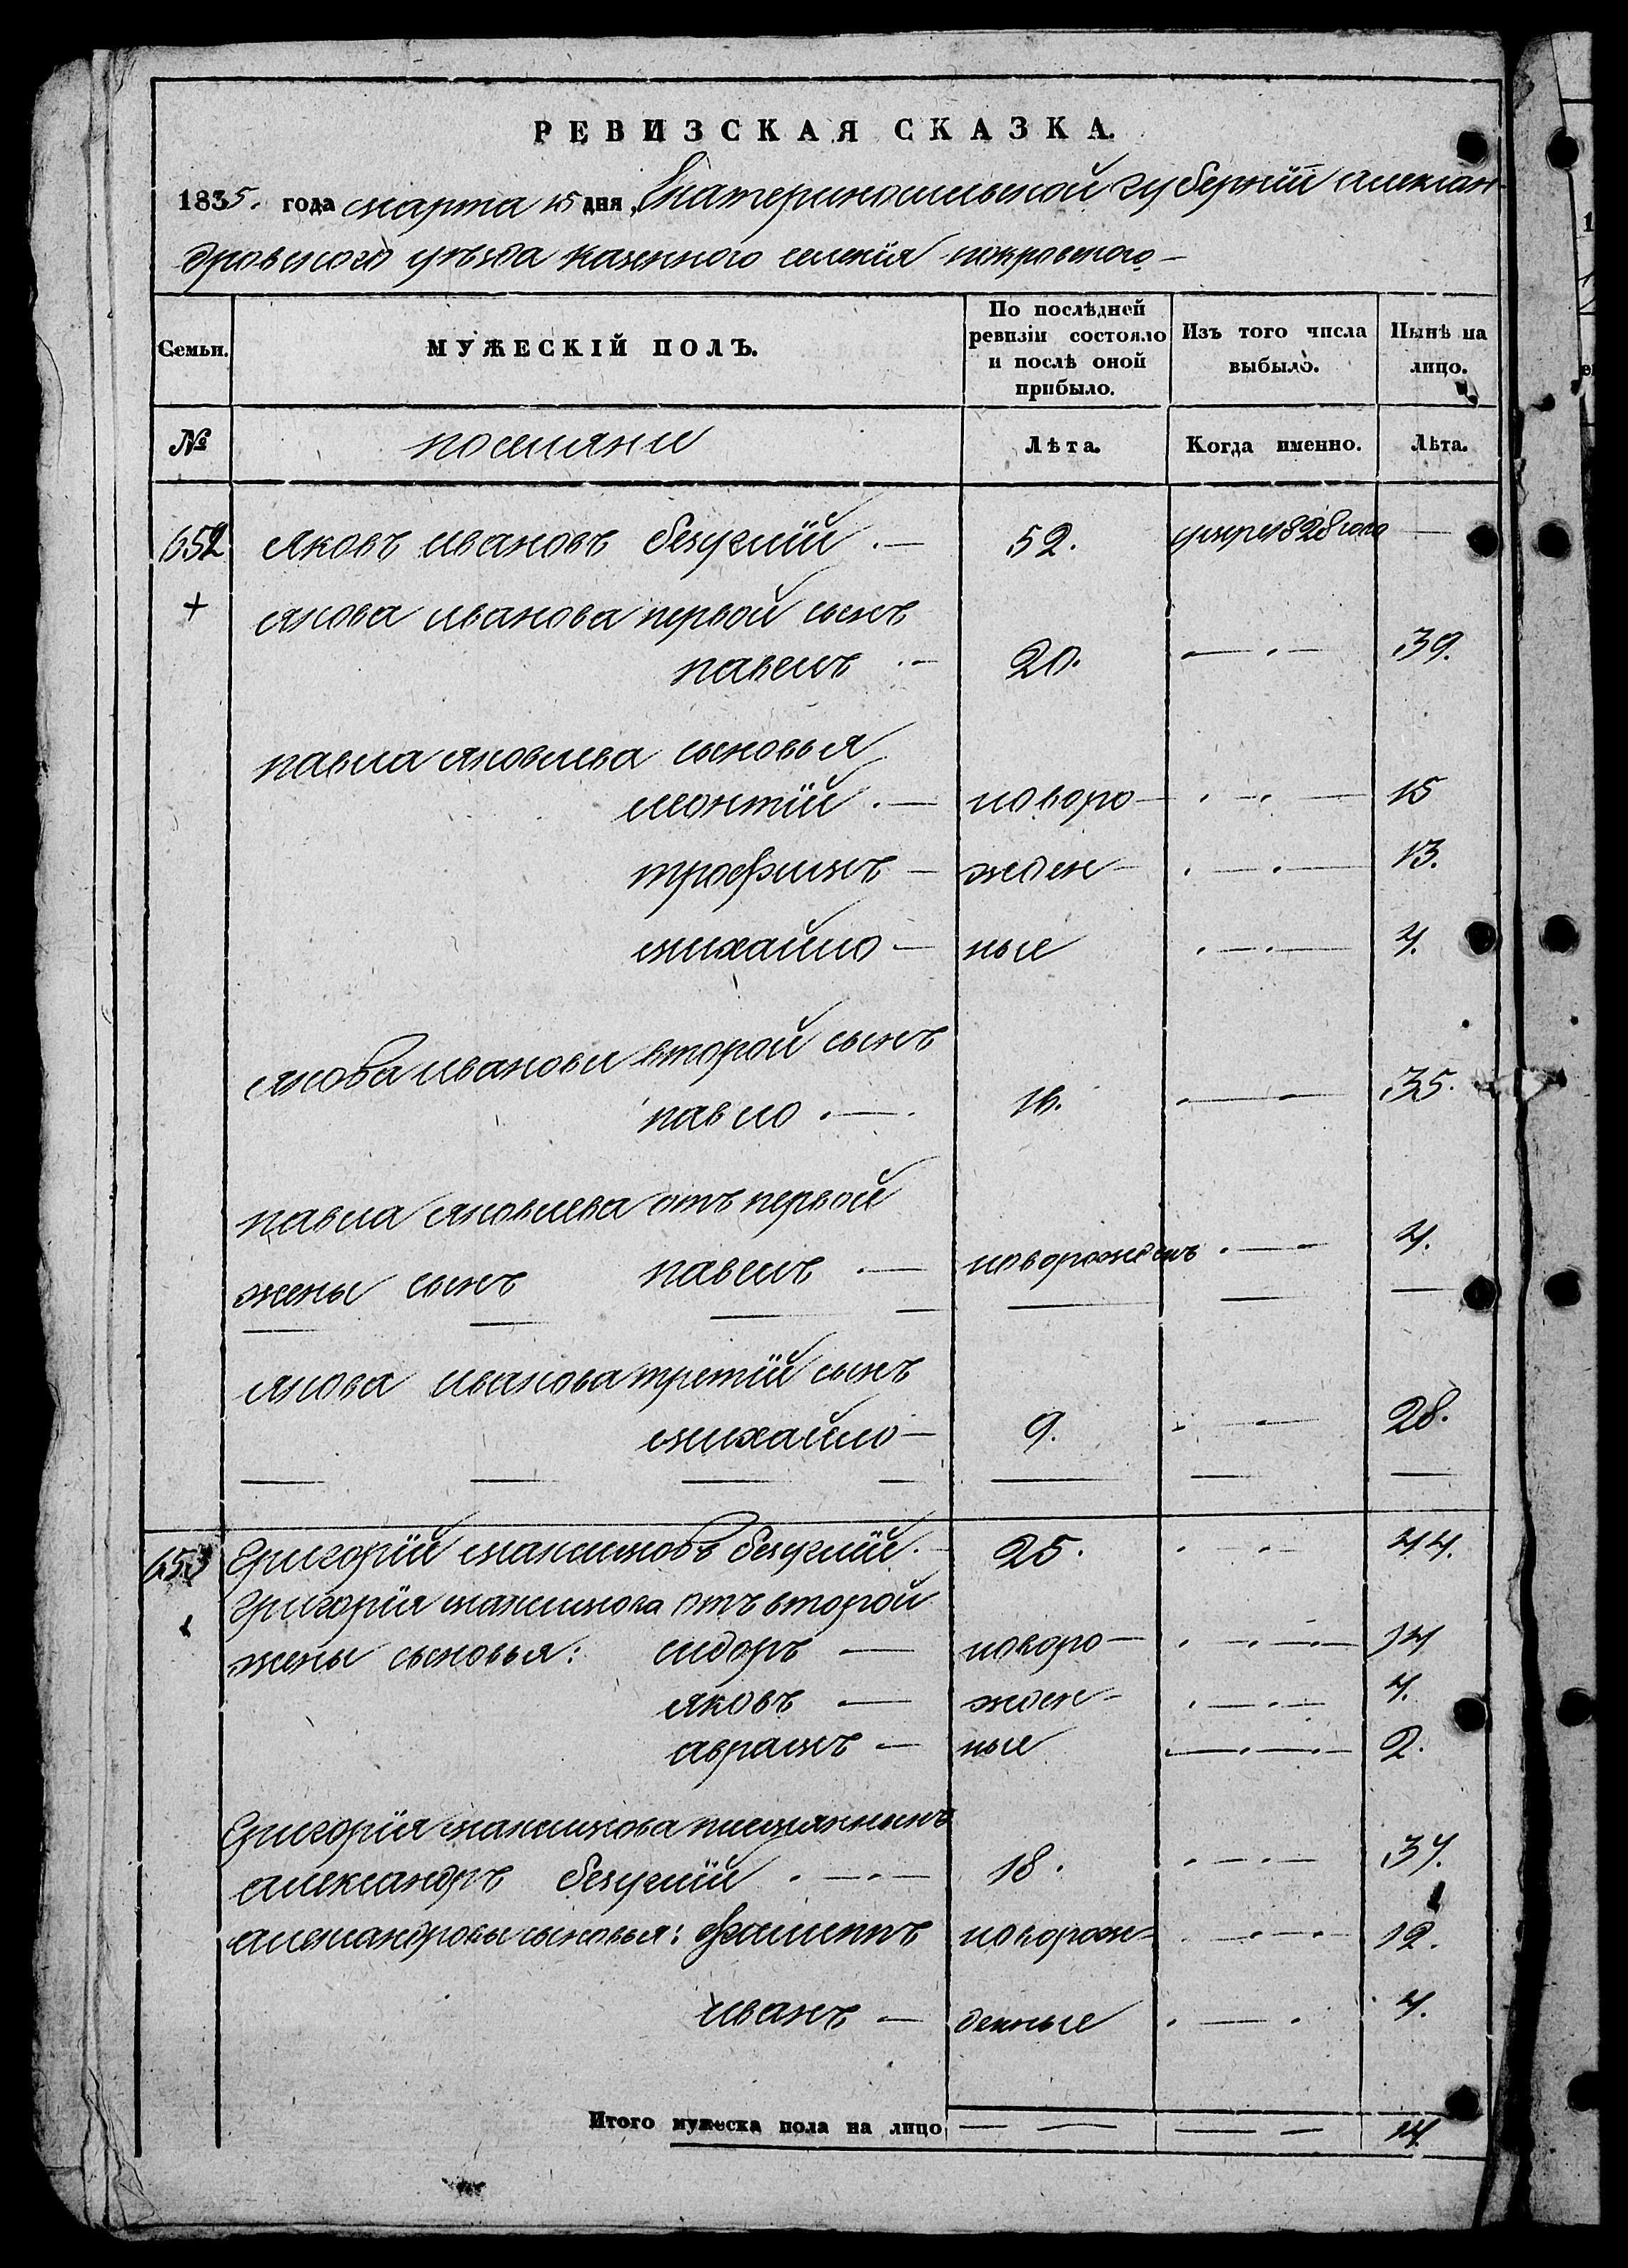 РЕВИЗСКАЯ СКАЗКА.
1835. года марта 15 дня, Екатеринославской губерніи алексан-
дровского уѣзда казенного селенія покровского
Семьи. МУЖЕСКІЙ ПОЛЪ. По послѣдней ревизіи состояло и послѣ оной прибыло. Изъ того числа выбыло. Нынѣ на лицо.
№ поселяне Лѣта. Когда именно. Лѣта.
652 яковъ ивановъ безуглій 52. умре 1828 года —
якова иванова первой сынъ
павелъ 20. 39.
павла яковлева сыновья
леонтій новоро- 15
трофимъ жден- 13.
михайло ные 4.
якова иванова второй сынъ
павло 16. 35.
павла яковлева отъ первой
жены сынъ павелъ новорожденъ 4.
якова иванова третій сынъ
михайло 9. 28.
653 Григорій максимовъ безуглій 25. 44.
Григорія максимова отъ второй
жены сыновья: сидоръ новоро- 14
яковъ жден- 4.
аврамъ ные 2.
Григорія максимова племянникъ
александръ безуглій 18. 37.
александровы сыновья: новорож- 12.
иванъ денные 4.
Итого мужеска пола на лицо 14